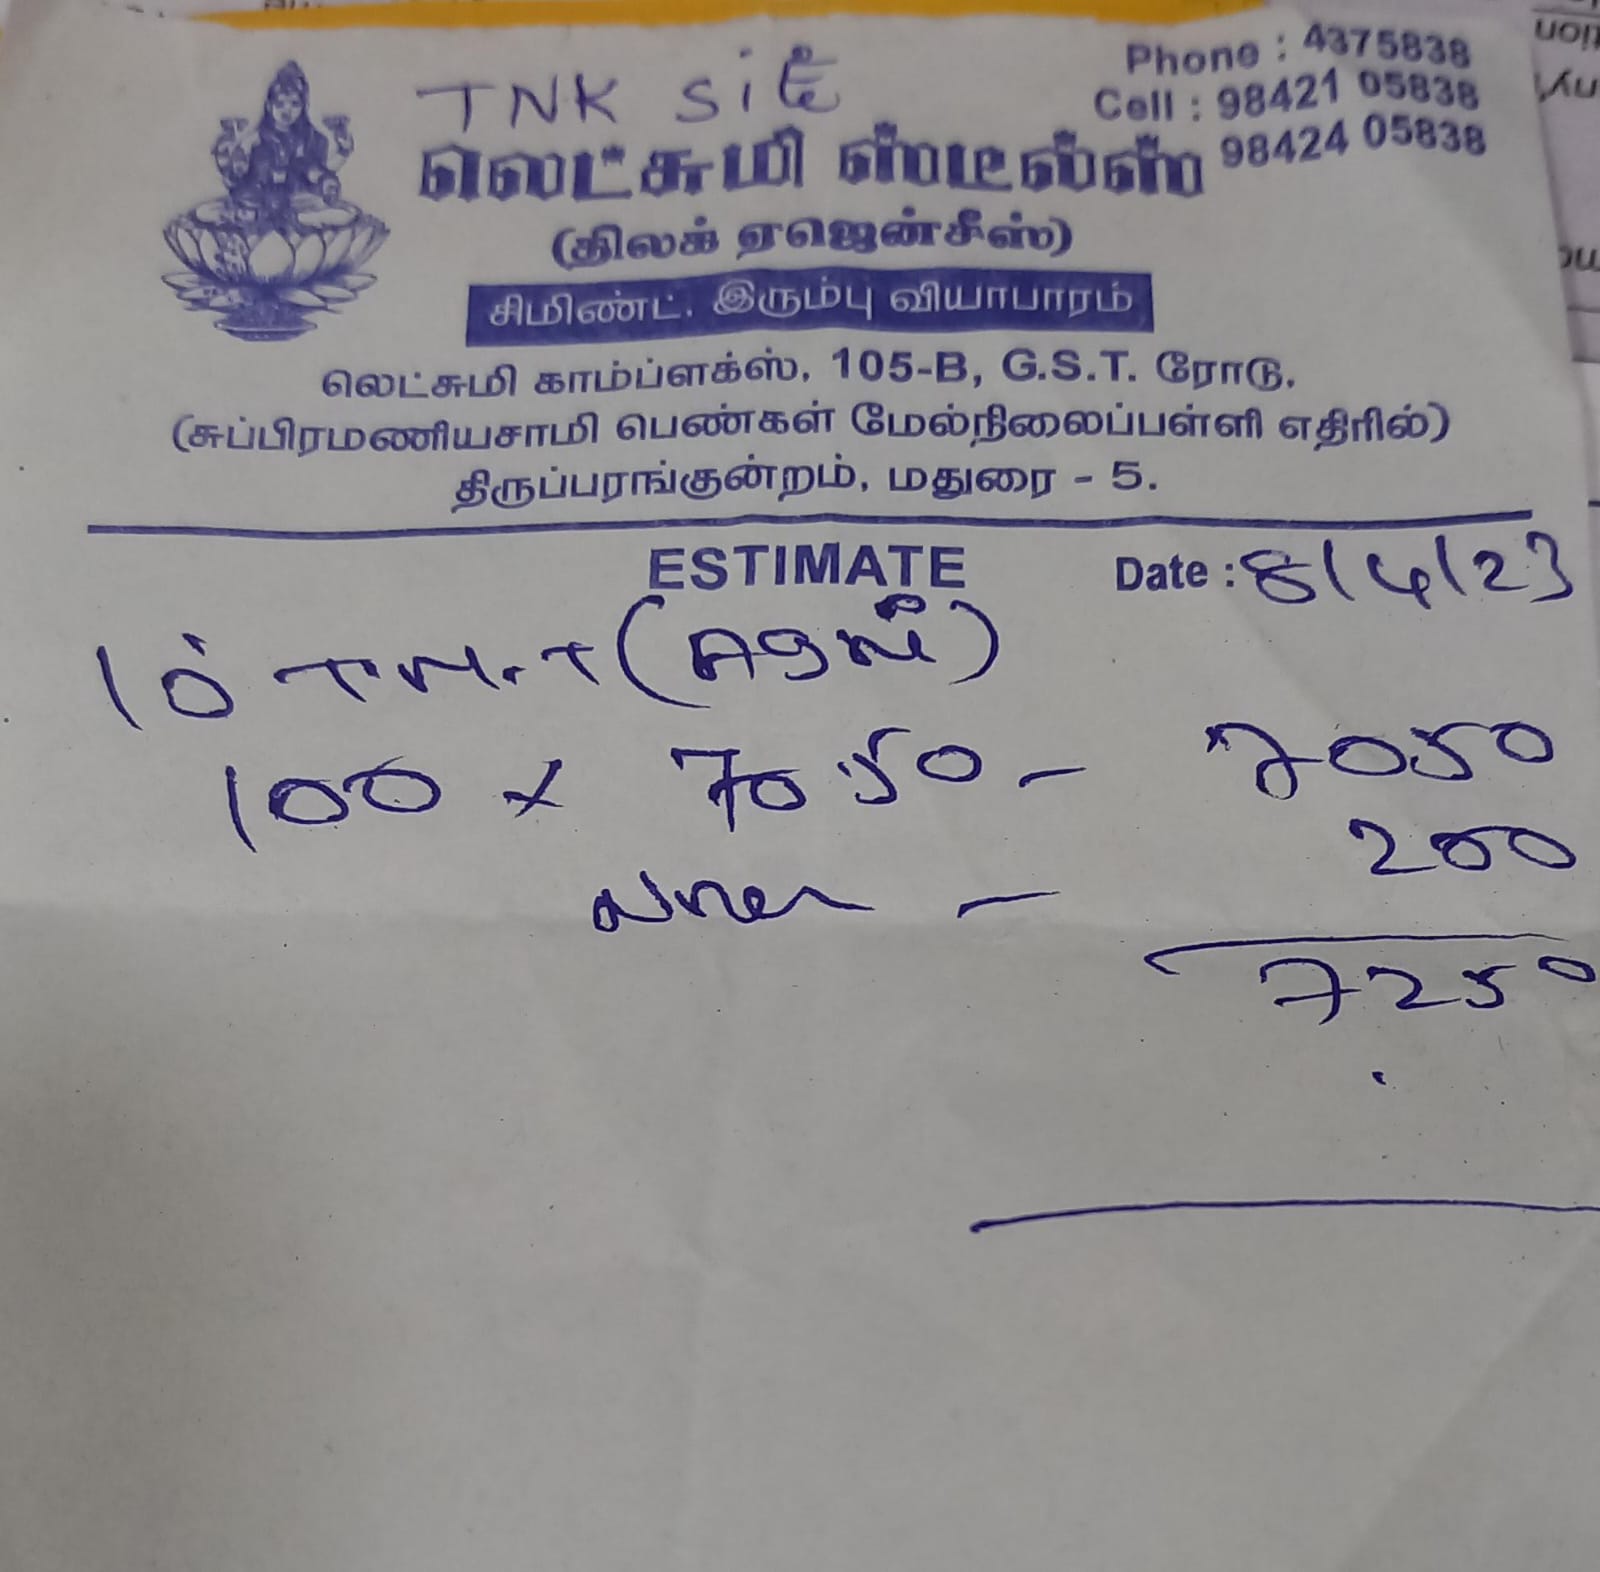 TNK SitE
Phone : 4375838
Cell : 98421 05838
98424 05838
லெட்சுமி ஸ்டீல்ஸ்
(திலக் ஏஜென்சீஸ்)
சிமிண்ட், இரும்பு வியாபாரம்
லெட்சுமி காம்ப்ளக்ஸ், 105-B, G.S.T. ரோடு,
(சுப்பிரமணியசாமி பெண்கள் மேல்நிலைப்பள்ளி எதிரில்)
திருப்பரங்குன்றம், மதுரை - 5.
ESTIMATE Date : 8/4/23
10 T.M.T (
100 x 7050 - 7050
- 200
7250